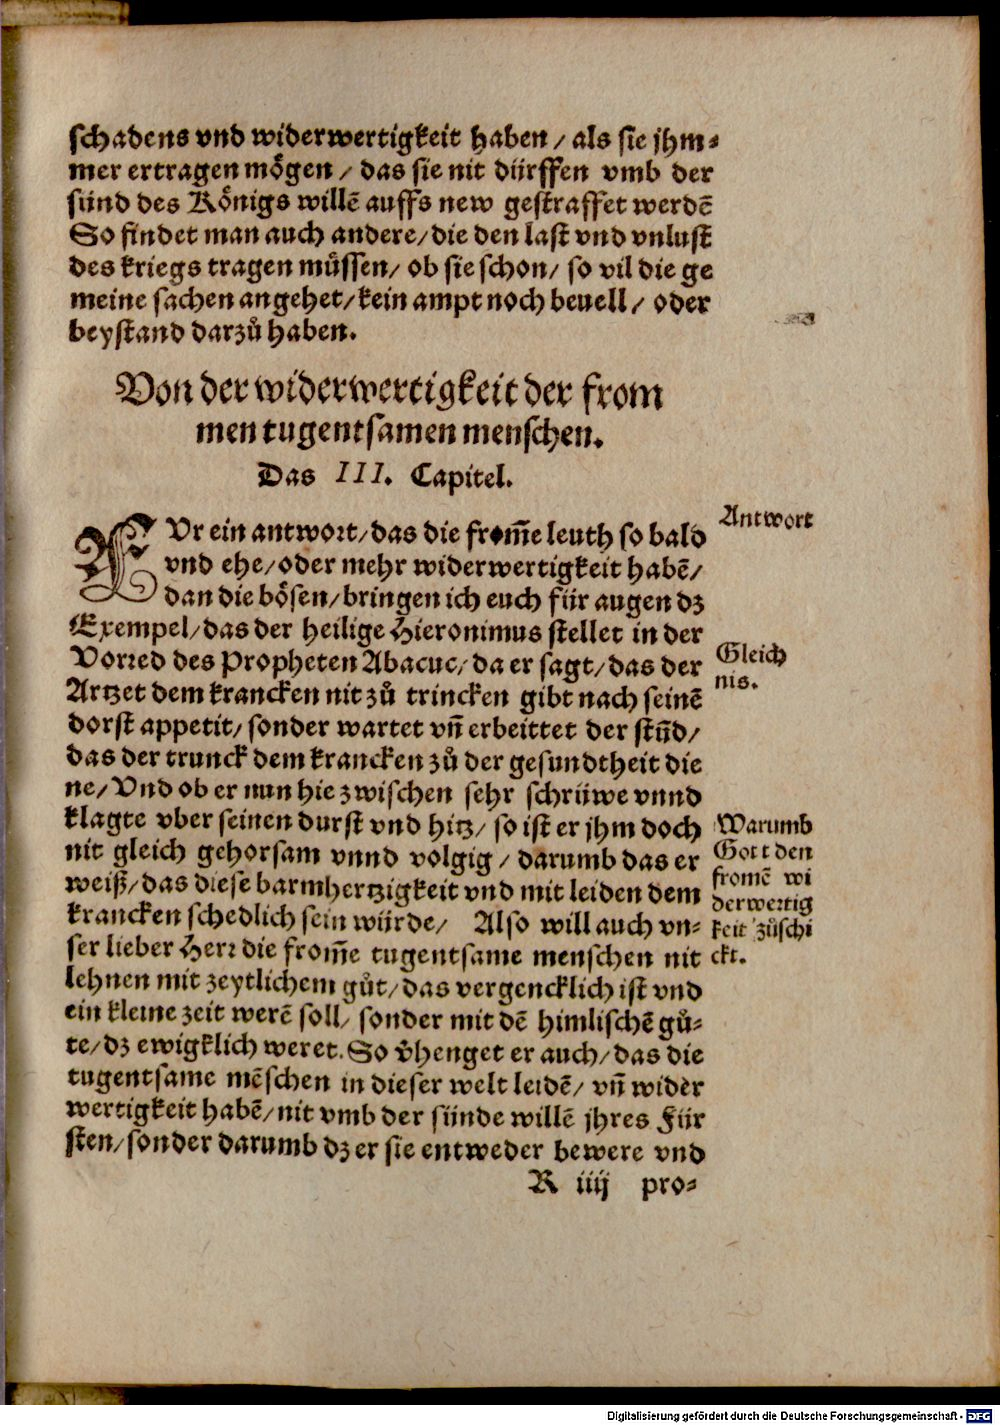 schadens vnd widerwertigkeit haben / als sie jhm⸗
mer ertragen moͤgen / das sie nit duͤrffen vmb der
suͤnd des Koͤnigs willē auffs new gestraffet werdē
So findet man auch andere / die den last vnd vnlust
des kriegs tragen muͤssen / ob sie schon / so vil die ge
meine sachen angehet / kein ampt noch beuell / oder
beystand darzuͦ haben.
Von der widerwertigkeit der from
men tugentsamen menschen.
Das III. Capitel.
Antwort
FVr ein antwort / das die from̄e leuth so bald
vnd ehe / oder mehr widerwertigkeit habē /
dan die boͤsen / bringen ich euch fuͤr augen dz
Exempel / das der heilige Hieronimus stellet in der
Vorred des Propheten Abacuc / da er sagt / das der
Gleich
nis.
Artzet dem krancken nit zuͦ trincken gibt nach seinē
dorst appetit / sonder wartet vn̄ erbeittet der stūd /
das der trunck dem krancken zuͦ der gesundtheit die
ne / Vnd ob er nun hie zwischen sehr schruͤwe vnnd
klagte vber seinen durst vnd hitz / so ist er jhm doch
nit gleich gehorsam vnnd volgig / darumb das er
weiß / das diese barmhertzigkeit vnd mit leiden dem
krancken schedlich sein wuͤrde / Also will auch vn⸗
ser lieber Herr die from̄e tugentsame menschen nit
Warumb
Gott den
fromē wi
derwertig
keit zuͦschi
ckt.
lehnen mit zeytlichem guͦt / das vergencklich ist vnd
ein kleine zeit werē soll / sonder mit dē himlischē guͦ⸗
te / dz ewigklich weret. So v̄henget er auch / das die
tugentsame mēschen in dieser welt leidē / vn̄ wider
wertigkeit habē / nit vmb der suͤnde willē jhres Fuͤr
sten / sonder darumb dz er sie entweder bewere vnd
R iiij pro⸗
Digitalisierung gefördert durch die Deutsche Forschungsgemeinschaft - DFG